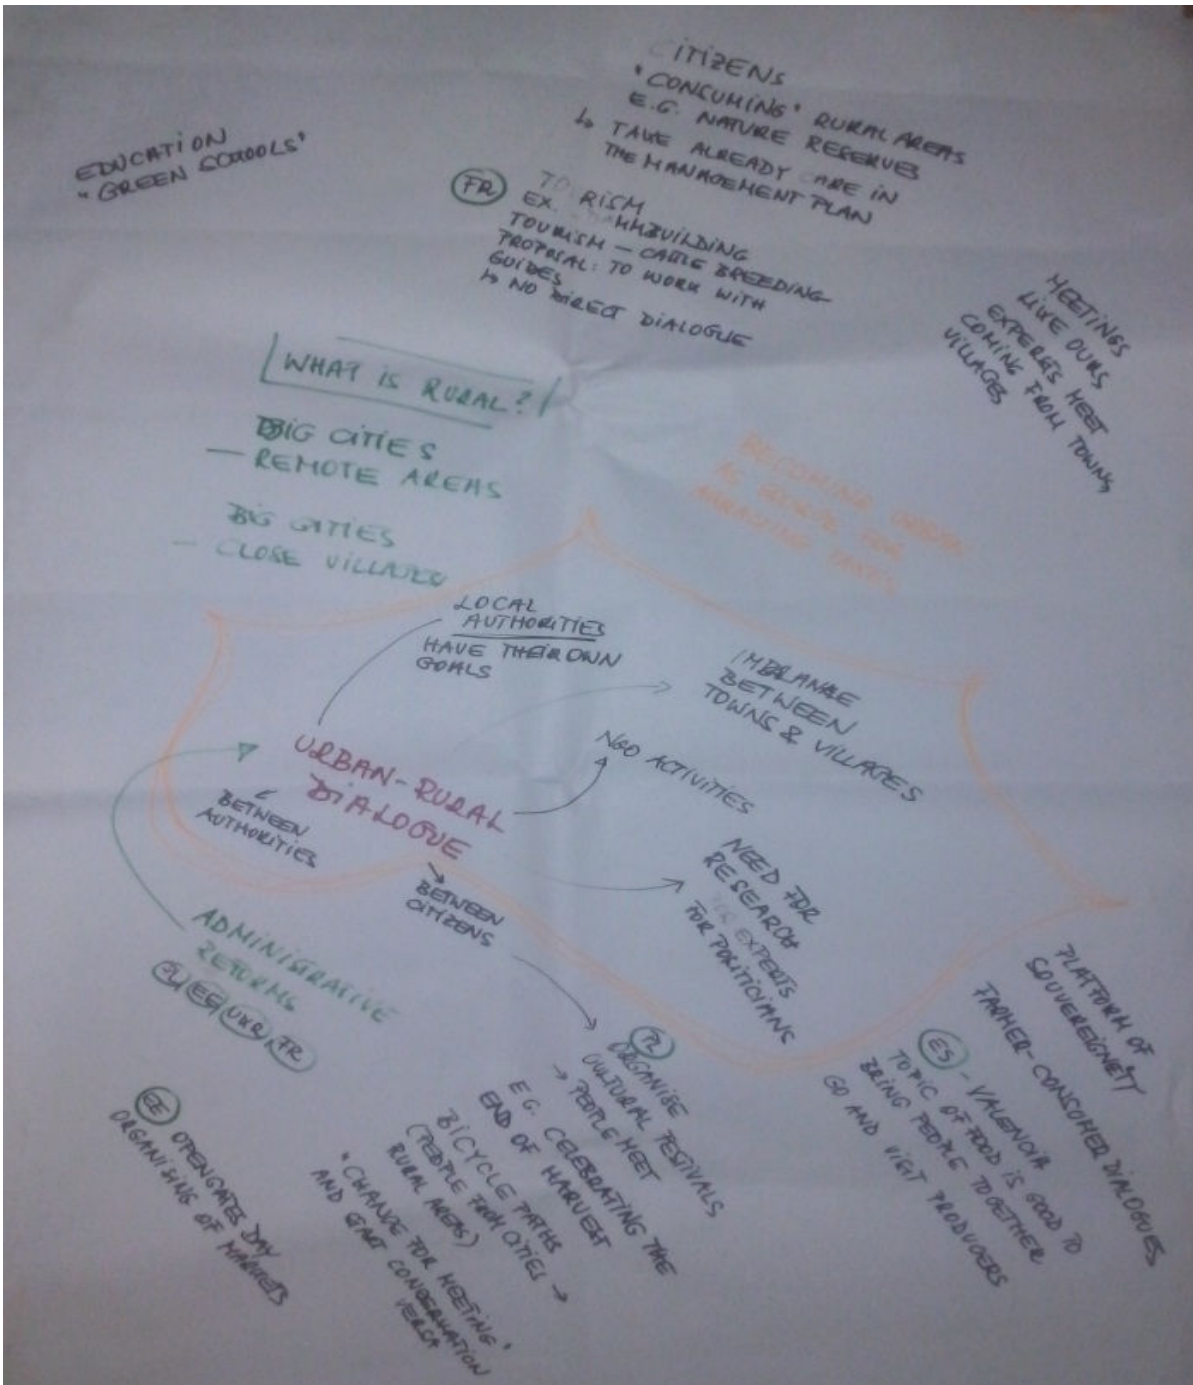 CITIZENS
"CONSUMING" RURAL AREAS
E.G. NATURE RESERVES
↳ TAKE ALREADY CARE IN
THE MANAGEMENT PLAN
EDUCATION
"GREEN SCHOOLS"
FR TOURISM
EX.
TOURISM — CATTLE BREEDING
PROPOSAL: TO WORK WITH
GUIDES
↳ NO DIRECT DIALOGUE
MEETINGS
LIKE OURS
EXPERTS MEET
COMING FROM TOWNS,
VILLAGES
WHAT IS RURAL?
BIG CITIES
— REMOTE AREAS
BIG CITIES
— CLOSE VILLAGES
BECOMING URBAN
AS
TAXES
LOCAL
AUTHORITIES
HAVE THEIR OWN
GOALS
IMBALANCE
BETWEEN
TOWNS & VILLAGES
NGO ACTIVITIES
URBAN-RURAL
DIALOGUE
BETWEEN
AUTHORITIES
BETWEEN
CITIZENS
NEED FOR
RESEARCH
FOR EXPERTS
FOR POLITICIANS
ADMINISTRATIVE
REFORMS
PL EE UKR FR
PLATFORM OF
SOUVEREIGNETY
FARMER-CONSUMER DIALOGUES
ES - VALENCIA
TOPIC OF FOOD IS GOOD TO
BRING PEOPLE TOGETHER
GO AND VISIT PRODUCERS
PL
ORGANISE
CULTURAL FESTIVALS
→ PEOPLE MEET
E.G. CELEBRATING THE
END OF HARVEST
BICYCLE PATHS
(PEOPLE FROM CITIES →
RURAL AREAS)
"CHANGE FOR MEETING"
AND START CONVERSATION
VERSA
EE OPENGATES DAY
ORGANISING OF MARKETS